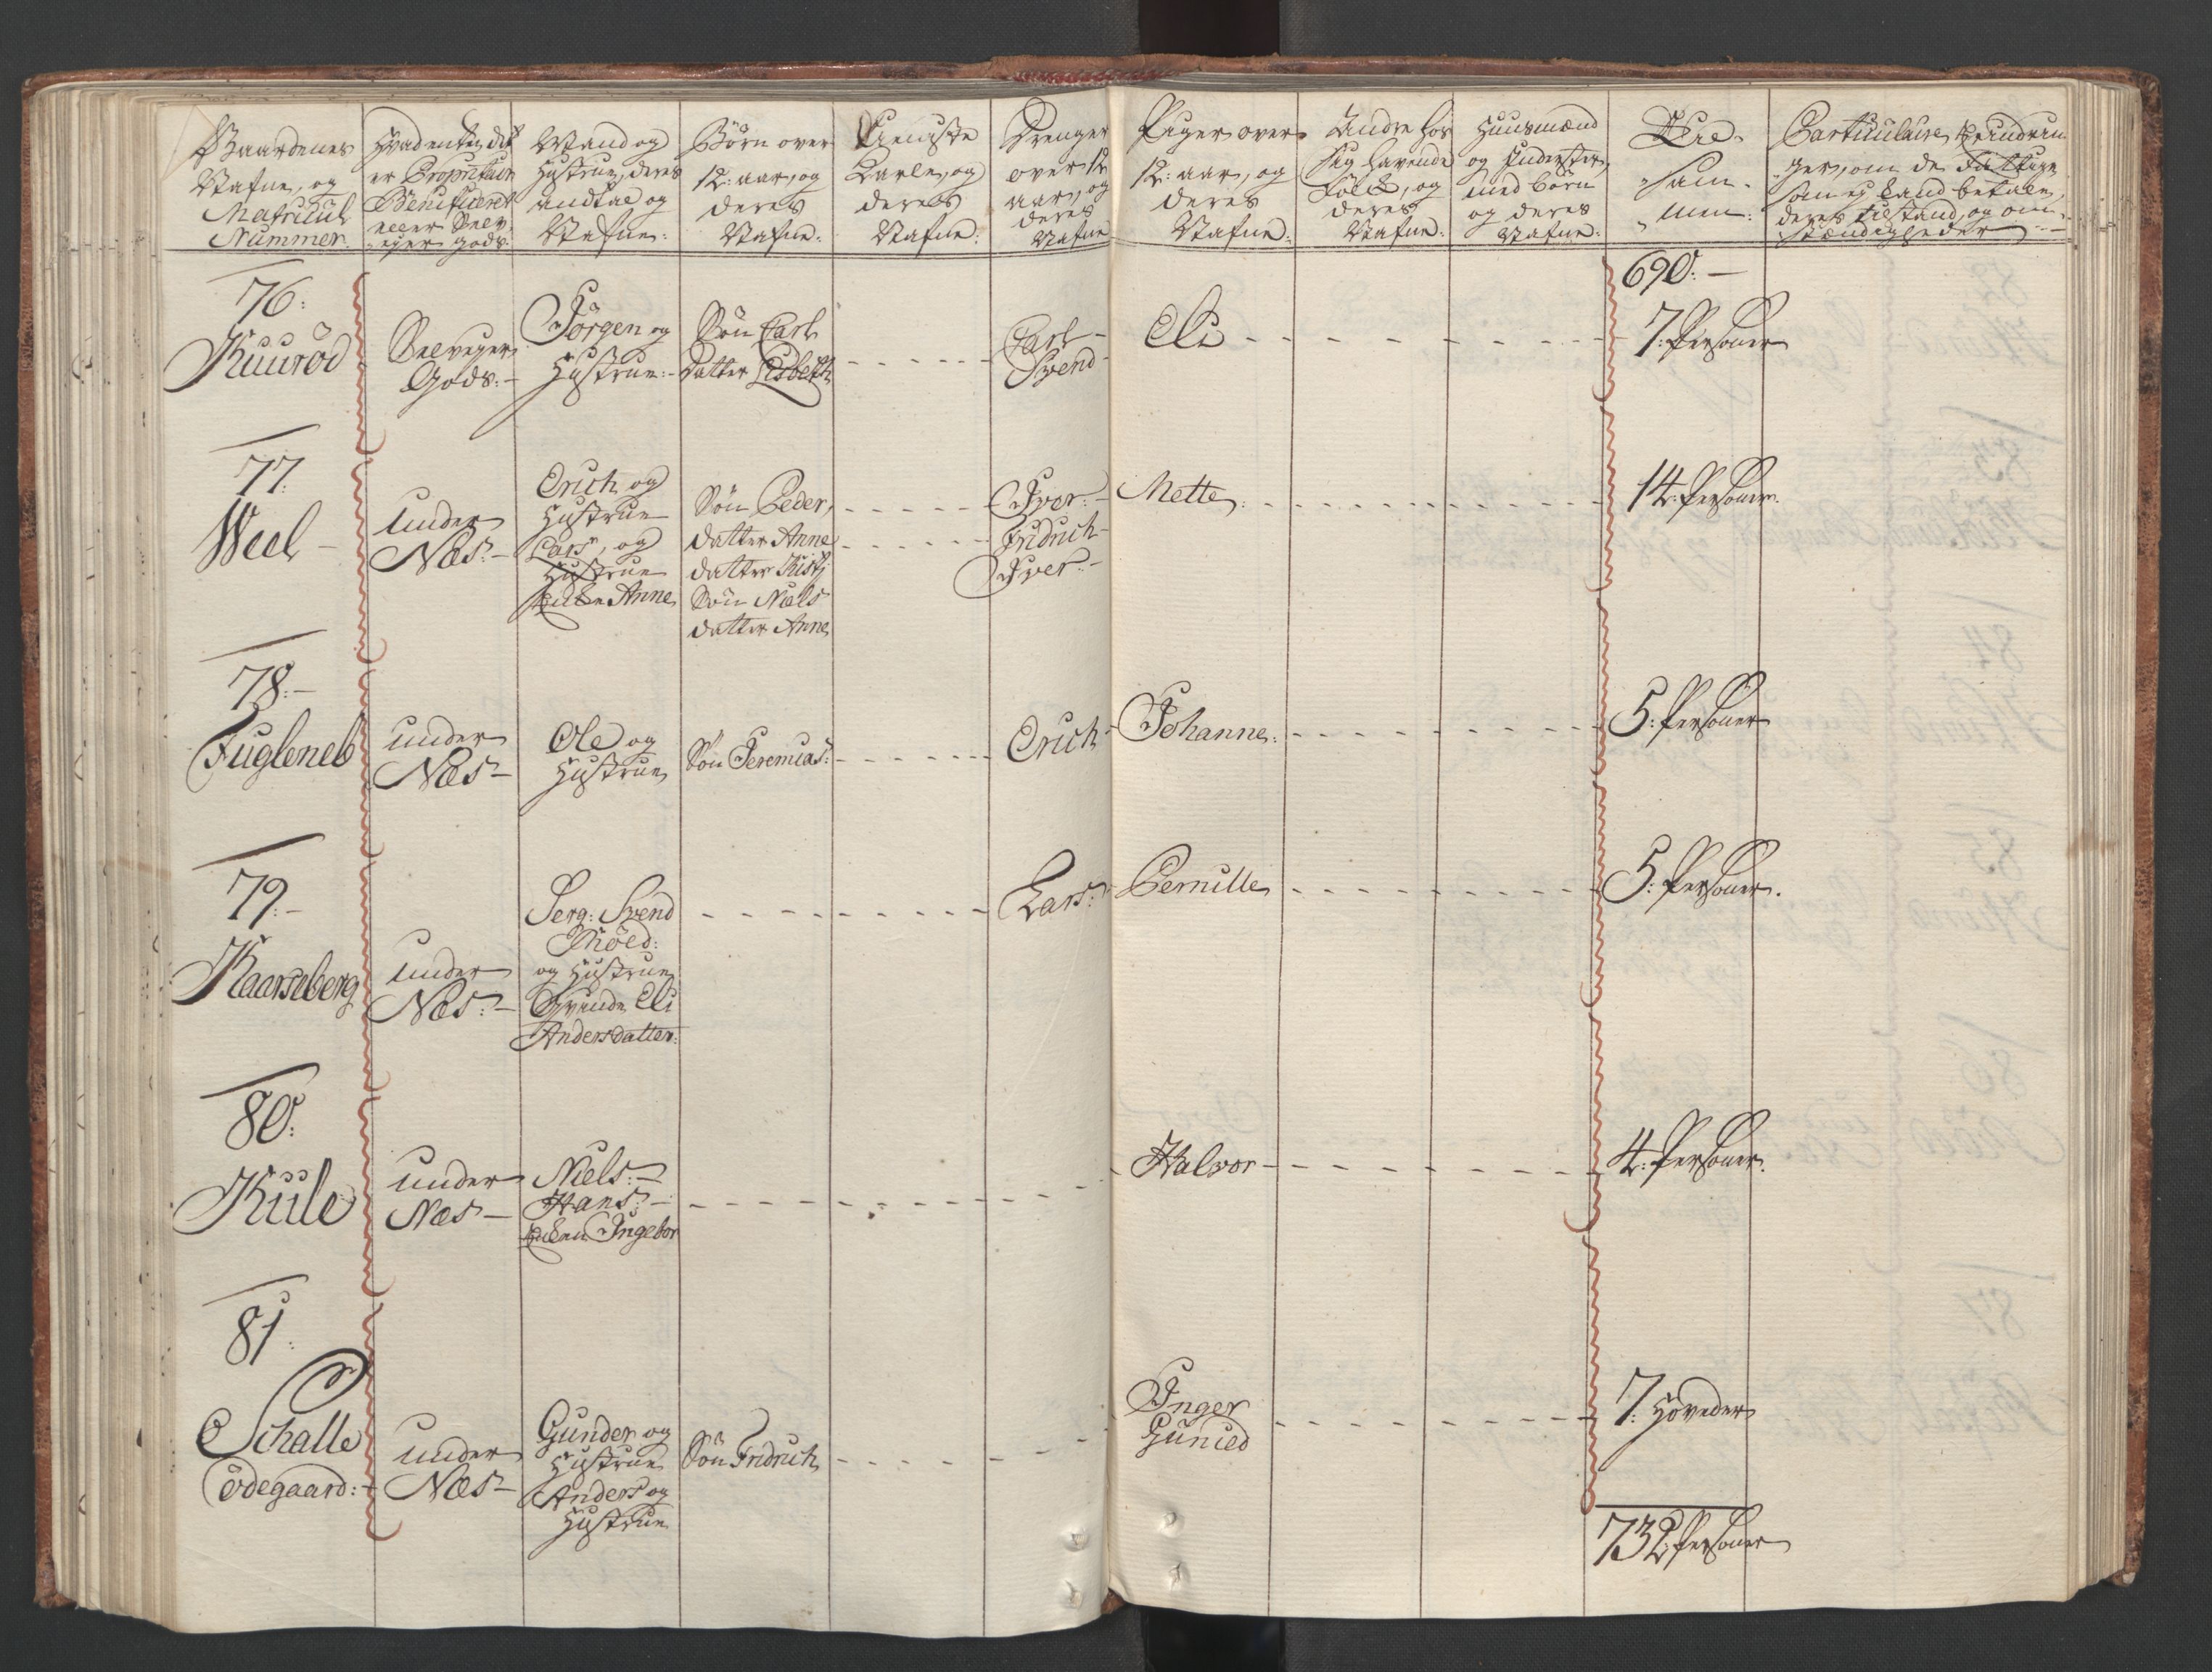 Gaardenes
Nafne, og
Matricul
Nummer.
Hvad enten det
er Proprietair
Beneficeret
eller Selv-
eyer gods.
Mand og
Hustrue, deres
andtal og
Nafne:
Børn over
12: aar, og
deres
Nafne:
Tieniste
Karle, og
deres
Nafne:
Drenge
over 12
aar, og
deres
Nafne
Piger over
12: aar, og
deres
Nafne:
Andre hos
sig havende
Folck, og
deres
Nafne:
Huusmænd
og Inderster,
med børn
og deres
Nafne:
Til-
sam-
men:
Particulaire
ger, om de Fattige
som ej kand betale,
deres tilstand, og om-
stændigheder
690:
76:
Kuurød
Selveyer
Gods:
Jørgen og
Hustrue:
Søn Carl
Datter Lisbeth
Carl
Svend
Eli
7: Personer
77.
Weel
under
Næs:
Erich og
Hustrue
Lars, og
Hustrue
Enke Anne
Søn Peder,
datter Anne
datter Kisti
Søn Niels
datter Anne
Iver:
Fridrich
Iver:
Mette
14: Personer.
78:
Fugleneb
under
Næs
Ole og
Hustrue
Søn Jeremias:
Erich
Johanne:
5: Personer
79:
Kaarseberg
under
Næs:
Serg: Svend
Møld:
og Hustrue
Qvinde Eli
Andersdatter:
Lars:
Pernille
5: Personer.
80:
Kule
under
Næs
Niels:
Hans:
Enken Ingebor
Halvor
4: Personer.
81:
Schalle
Ødegaard:
under
Næs
Gunder og
Hustrue
Anders og
Hustrue
Søn Fridrich
Inger
Gunild
7: Hoveder
732 Personer